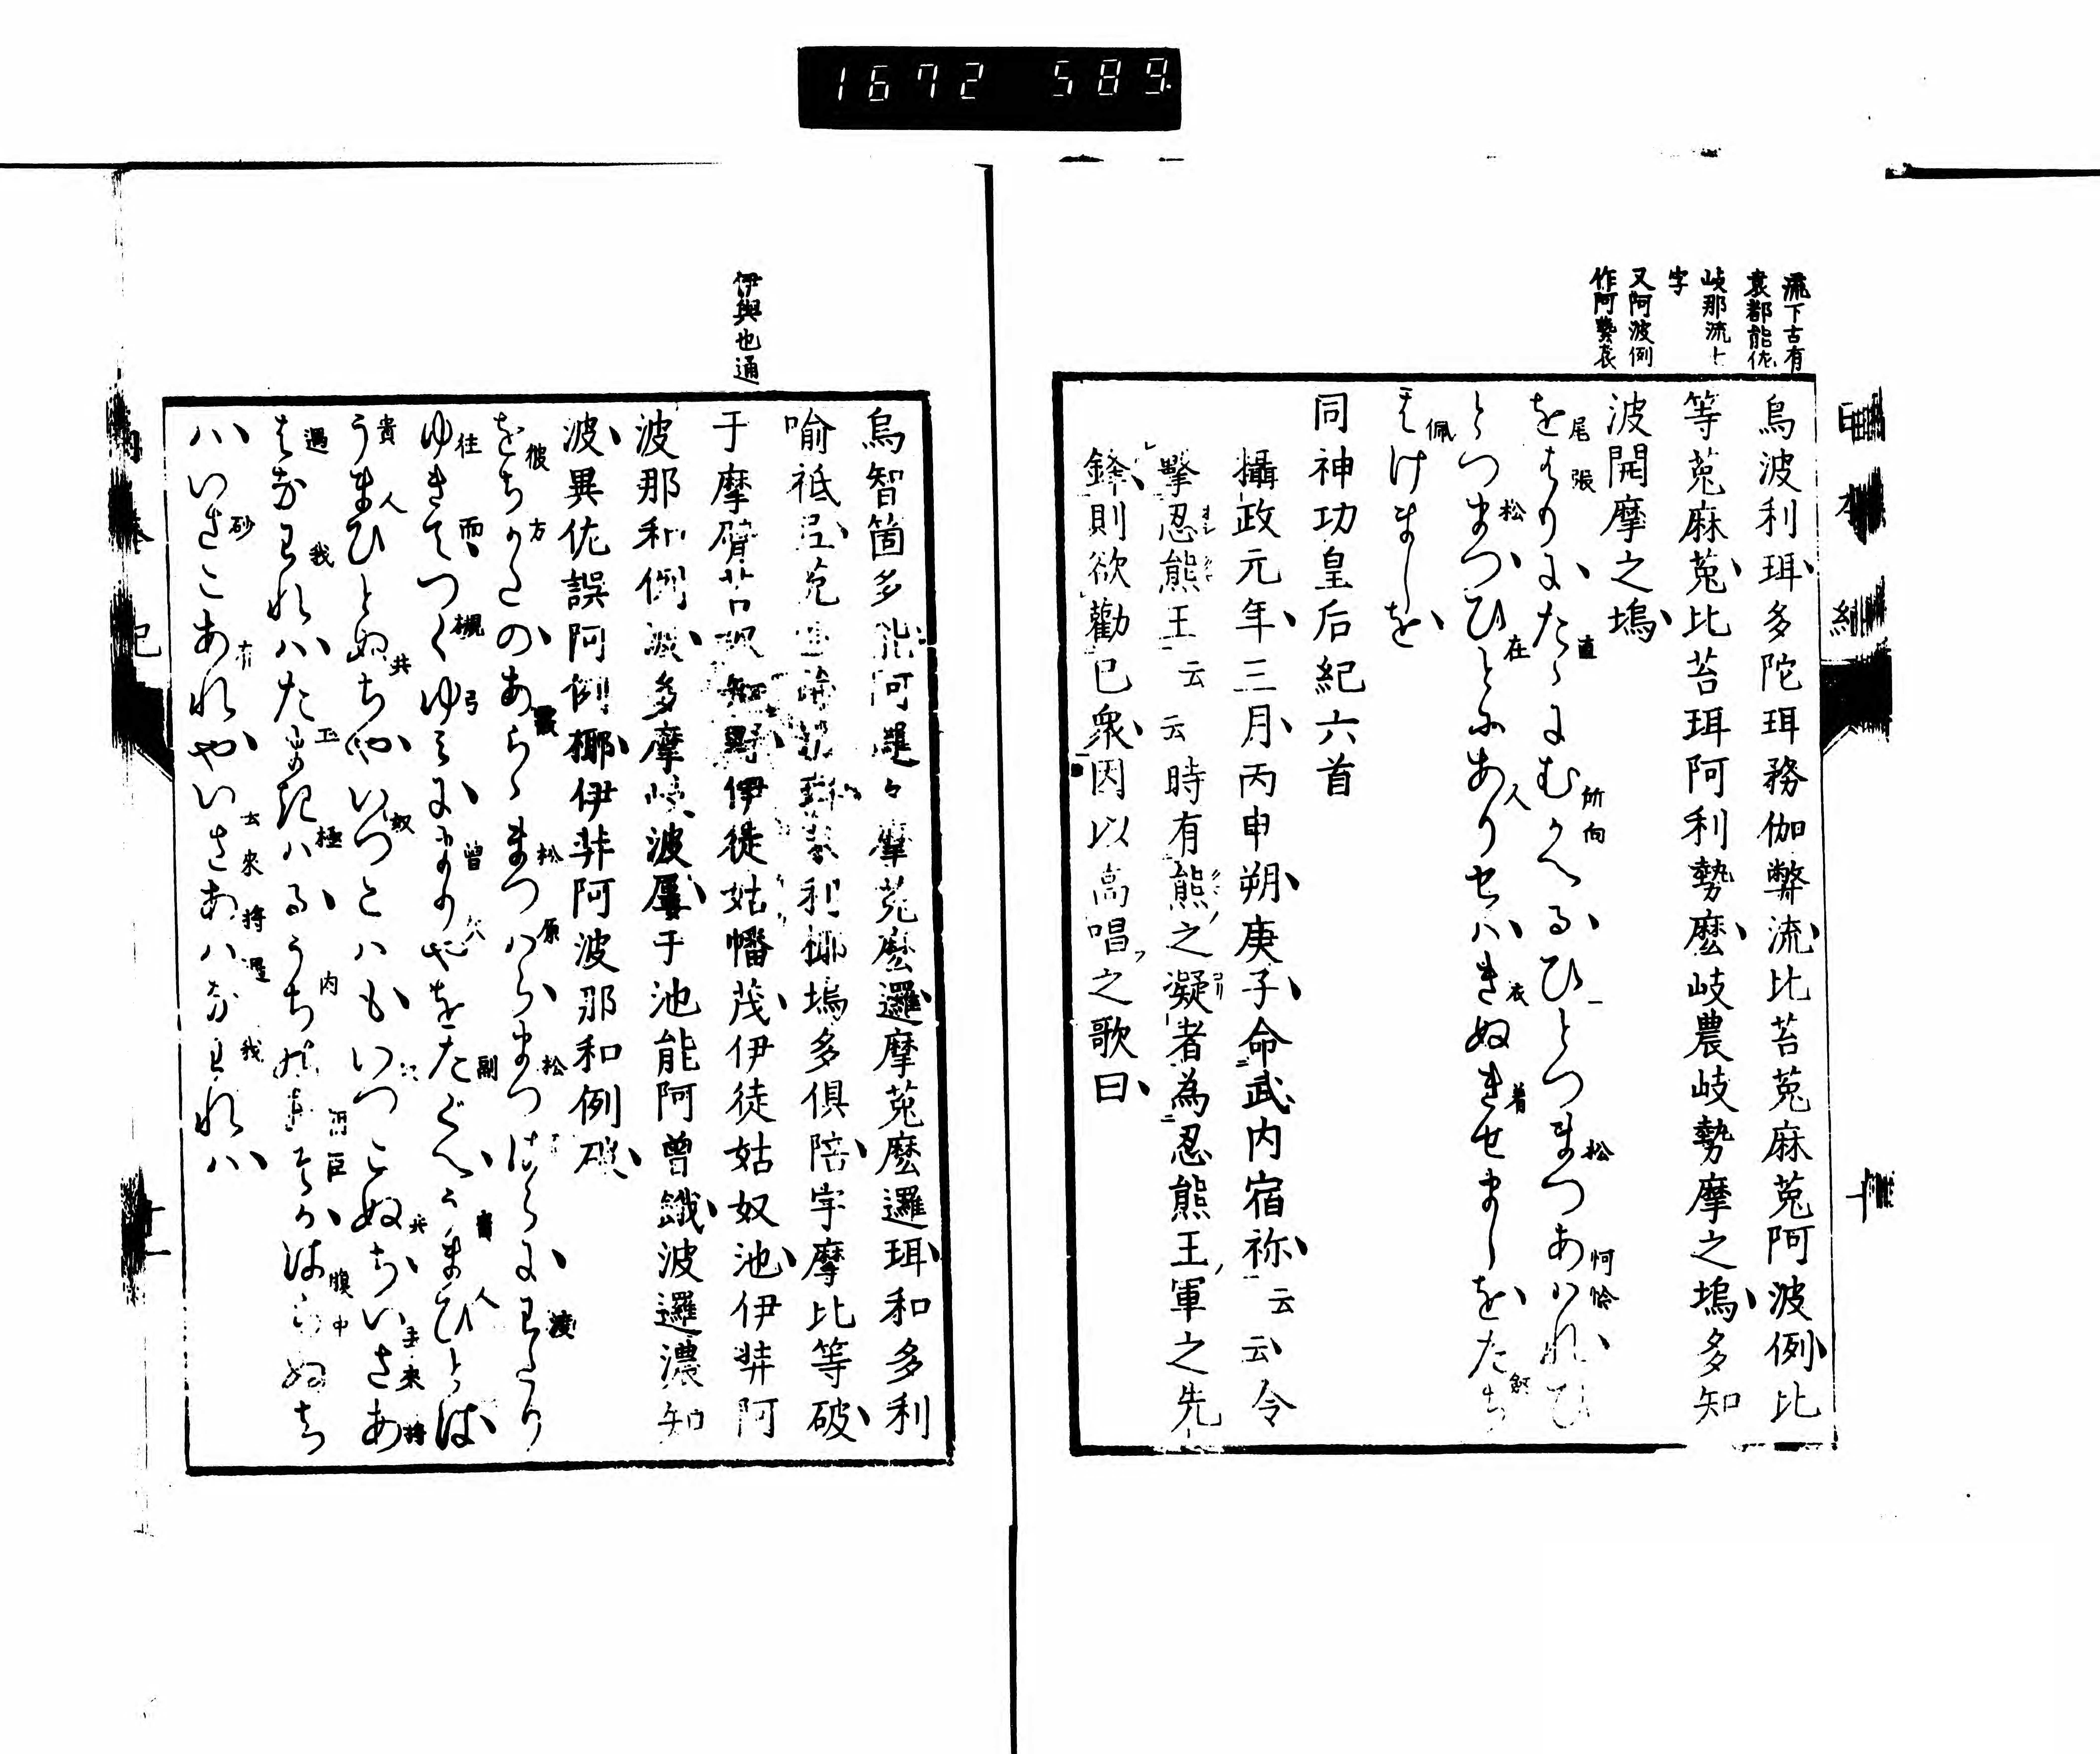 1672 589
流下古有
袁都能佐
岐那流上
字
又阿波例
作阿藝袁
烏波利珥多陀珥務伽弊流比苔菟麻菟阿波例比
等菟麻菟比苔珥阿利勢麼岐農岐勢摩之塢多知
波開摩之塢
をはりにたゝにむかへるひとつまつあはれひ
尾張 直 所向 一 松 怜
とつまつひとにありせはきぬきせましをたち
松 在 人 衣 着
はけましを
佩
同神功皇后紀六首
攝政元年三月丙申朔庚子命武内宿祢云云令
擊忍熊王云云時有熊之凝者為忍熊王軍之先
鋒則欲勸已衆因以高唱之歌曰
伊與也通
烏智箇多能阿邏々摩菟麼邏摩菟麼邏珥和多利
喻祇氐菟利椰塢多俱陪宇摩比等破
于摩苔知野伊徒姑幡茂伊徒姑奴池伊弉阿
波那和例波多摩岐波屢于池能阿曾餓波邏濃知
波異佐誤阿例椰伊弉阿波那和例破
をちかたのあらゝまつはらまつはらにわたり
彼方 松原 松 渡
ゆきてつくゆみにまりやをたぐへうまひとは
往而 槻弓 副 人
うまひととちやいつこはもいつこぬちいざあ
貴人 共 奴 来 将
はなわれはたまきはるうちのあそがはらぬち
遇 我 玉 極 内 腹中
はいさこあれやいさあはなわれは
砂 有 去来 将 遇 我